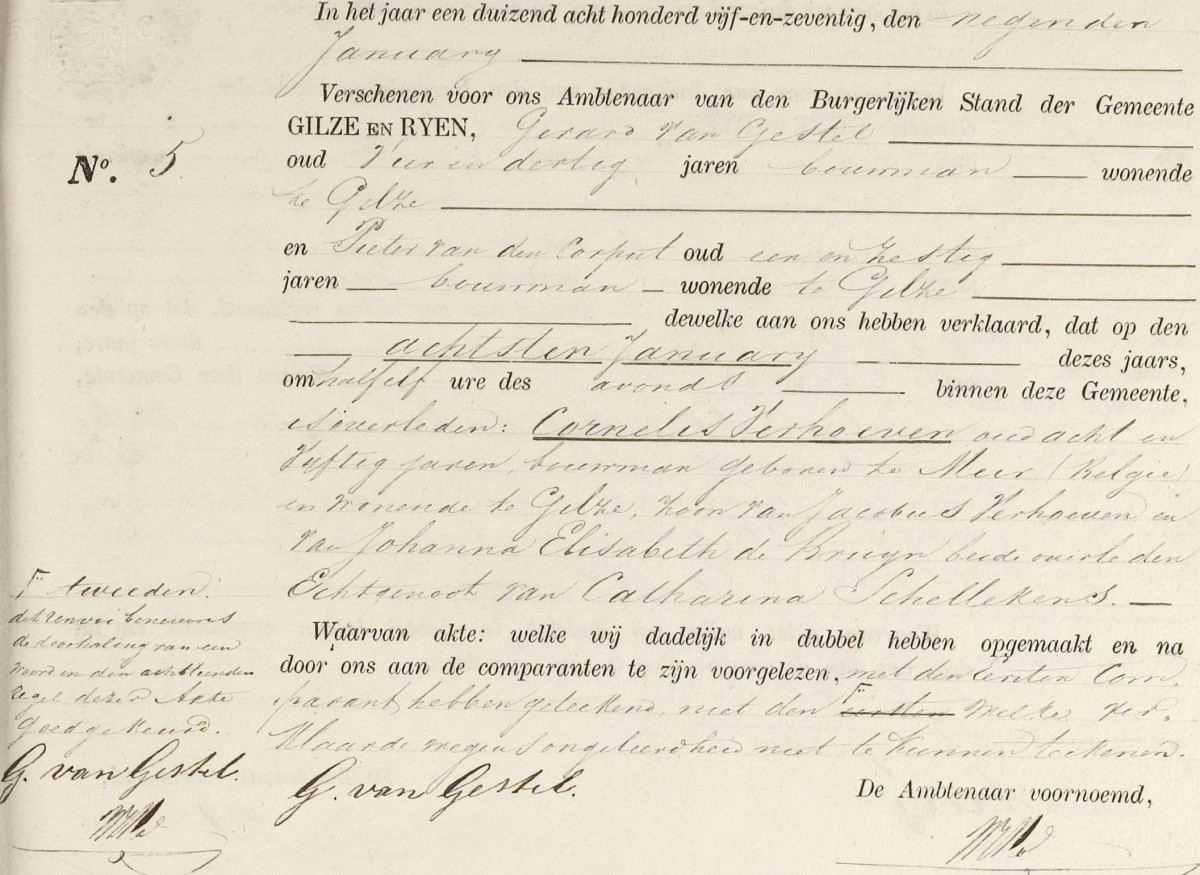 In het jaar een duizend acht honderd vijf-en-zeventig, den negenden
January
Verschenen voor ons Ambtenaar van den Burgerlijken Stand der Gemeente
GILZE EN RYEN, Gerard van Gestel
No. 5
oud Vier en dertig jaren bouwman wonende
te Gilze
en Pieter van den Corput oud een en zestig
jaren bouwman wonende te Gilze
dewelke aan ons hebben verklaard, dat op den
achtsten January dezes jaars,
om half elf ure des avonds binnen deze Gemeente,
is overleden: Cornelis Verhoeven oud acht en
Vyftig jaren, bouwman geboren te Meir (Belgie)
en wonende te Gilze, zoon van Jacobus Verhoeven en
van Johanna Elisabeth de Bruyn beide overleden
Echtgenoot van Catharina Schellekens.
Waarvan akte: welke wij dadelijk in dubbel hebben opgemaakt en na
door ons aan de comparanten te zijn voorgelezen, met den eersten Com-
parant hebben geteekend, niet den eersten welke ver-
klaarde wegens ongeleerdheid niet te kunnen teekenen.
tweeden.
dit renvooi benevens
de doorhaling van een
woord in den achttienden
regel dezer Akte
goedgekeurd.
G. van Gestel.
G. van Gestel.
De Ambtenaar voornoemd,